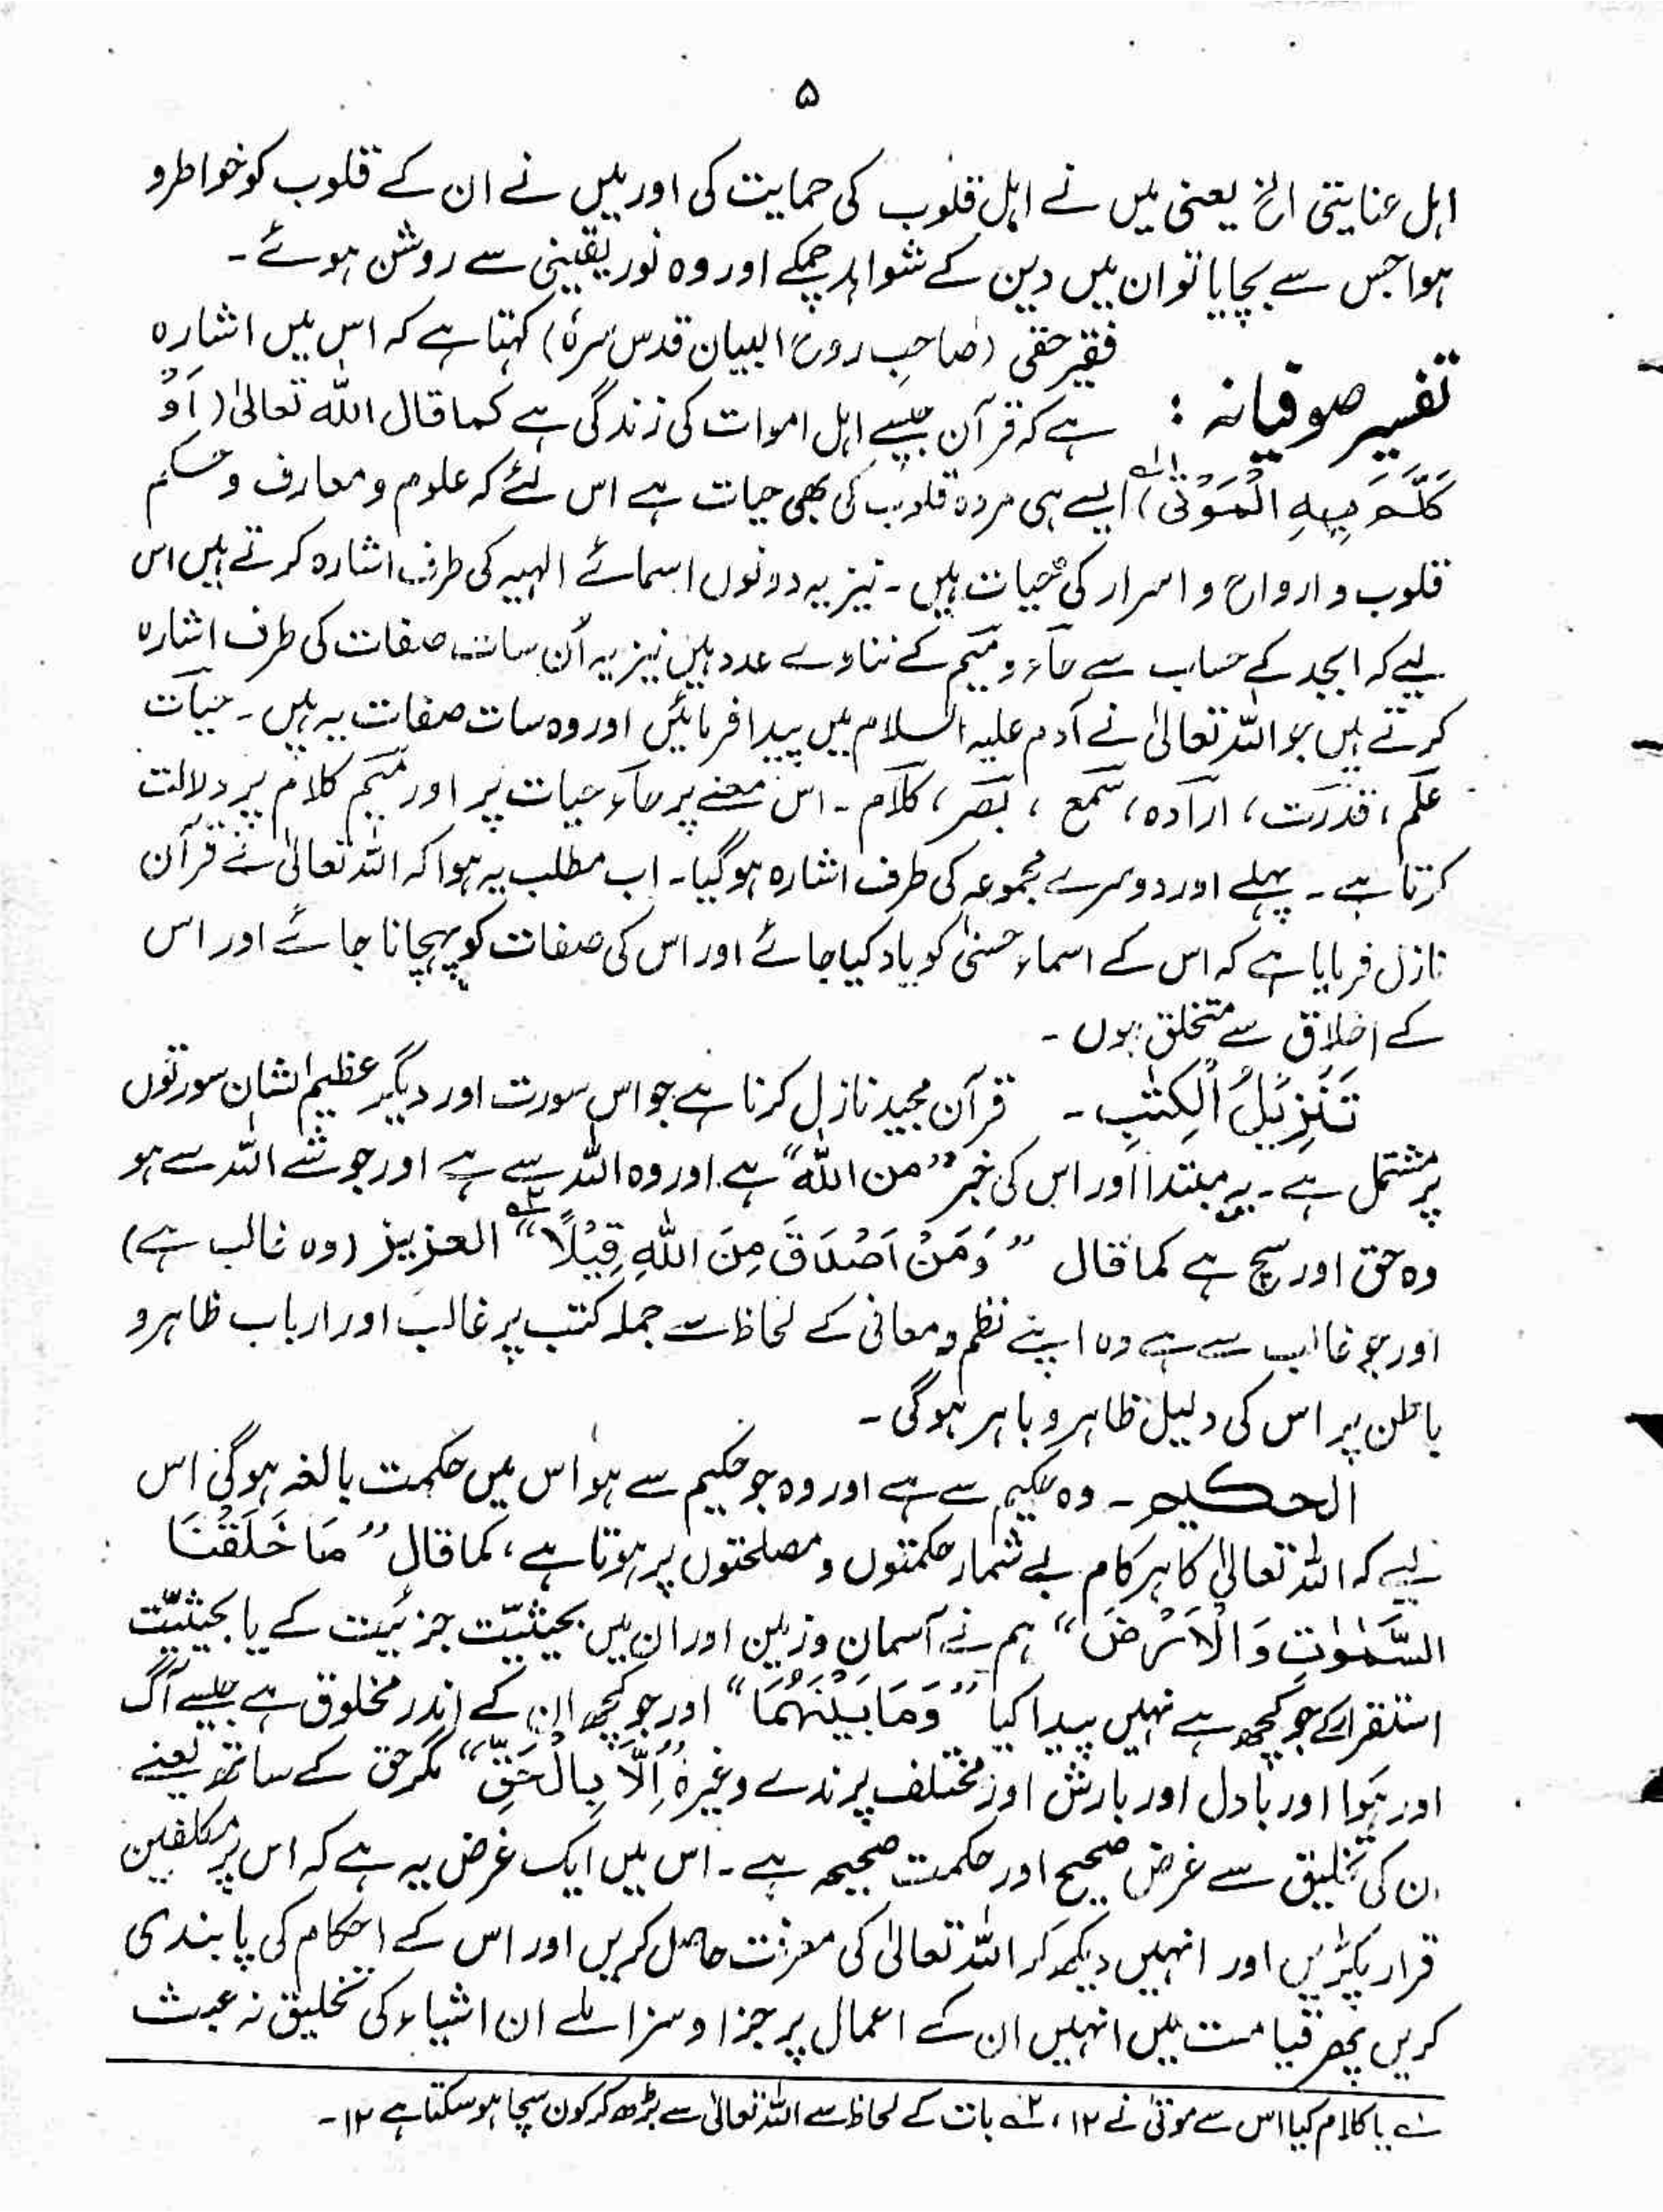 ۵
اہل عنایتی الخ یعنی میں نے اہل قلوب کی حمایت کی اور میں نے ان کے قلوب کو خواطر و
ہواجس سے بچایا تو ان میں دین کے شواہد چمکے اور وہ نور یقینی سے روشن ہوئے۔
فقیر حقی (صاحب روح البیان قدس سرہٗ) کہتا ہے کہ اس میں اشارہ
تفسیر صوفیانہ :
ہے کہ قرآن جیسے اہل اموات کی زندگی ہے کما قال اللہ تعالیٰ (اَوْ
كُلِّمَ بِهِ الْمَوْتٰی)۱؎ ایسے ہی مردہ قلوب کی بھی حیات ہے اس لئے کہ علوم و معارف و حکم
قلوب و ارواح و اسرار کی حیات ہیں۔ نیز یہ دونوں اسمائے الٰہیہ کی طرف اشارہ کرتے ہیں اس
لیے کہ ابجد کے حساب سے حآء و میم کے ننانوے عدد ہیں نیز یہ اُن سات صفات کی طرف اشارہ
کرتے ہیں جو اللہ تعالیٰ نے آدم علیہ السلام میں پیدا فرمائیں اور وہ سات صفات یہ ہیں۔ حیات
علم، قدرت، ارادہ، سمع، بصر، کلام۔ اس معنے پر حآء حیات پر اور میم کلام پر دلالت
کرتا ہے۔ پہلے اور دوسرے مجموعہ کی طرف اشارہ ہوگیا۔ اب مطلب یہ ہوا کہ اللہ تعالیٰ نے قرآن
نازل فرمایا ہے کہ اس کے اسماء حسنیٰ کو یاد کیا جائے اور اس کی صفات کو پہچانا جائے اور اس
کے اخلاق سے متخلق ہوں۔
تَنْزِيْلُ الْكِتٰبِ۔ قرآن مجید نازل کرنا ہے جو اس سورت اور دیگر عظیم الشان سورتوں
پر مشتمل ہے۔ یہ مبتدا اور اس کی خبر ”من اللّٰہ“ ہے اور وہ اللہ سے ہے اور جو شے اللہ سے ہو
وہ حق اور سچ ہے کما قال ”وَمَنْ اَصْدَقُ مِنَ اللّٰهِ قِيْلًا“۲؎ العزیز (وہ غالب ہے)
اور جو غالب سے ہے وہ اپنے نظم و معانی کے لحاظ سے جملہ کتب پر غالب اور ارباب ظاہر و
باطن پر اس کی دلیل ظاہر و باہر ہوگی۔
الحکیم۔ وہ حکیم سے ہے اور وہ جو حکیم سے ہو اس میں حکمت بالغہ ہوگی اس
لیے کہ اللہ تعالیٰ کا ہر کام بے شمار حکمتوں و مصلحتوں پر ہوتا ہے، کما قال ”مَا خَلَقْنَا
السَّمٰوٰتِ وَالْاَرْضَ“ ہم نے آسمان و زمین اور ان میں بحیثیّت جزئیت کے یا بحیثیّت
استقرار کے جو کچھ ہے نہیں پیدا کیا ”وَمَا بَيْنَهُمَا“ اور جو کچھ ان کے اندر مخلوق ہے جیسے آگ
اور ہَوا اور بادل اور بارش اور مختلف پرندے وغیرہ ”اِلَّا بِالْحَقِّ“ مگر حق کے ساتھ یعنے
ان کی تخلیق سے غرض صحیح اور حکمت صحیحہ ہے۔ اس میں ایک غرض یہ ہے کہ اس پر مکلفین
قرار پکڑیں اور انہیں دیکھ کر اللہ تعالیٰ کی معرفت حاصل کریں اور اس کے احکام کی پابندی
کریں پھر قیامت میں انہیں ان کے اعمال پر جزا و سزا ملے ان اشیاء کی تخلیق نہ عبث
۱؎ یا کلام کیا اس سے موتیٰ نے ۱۲، ۲؎ بات کے لحاظ سے اللہ تعالیٰ سے بڑھ کر کون سچا ہوسکتا ہے ۱۲۔